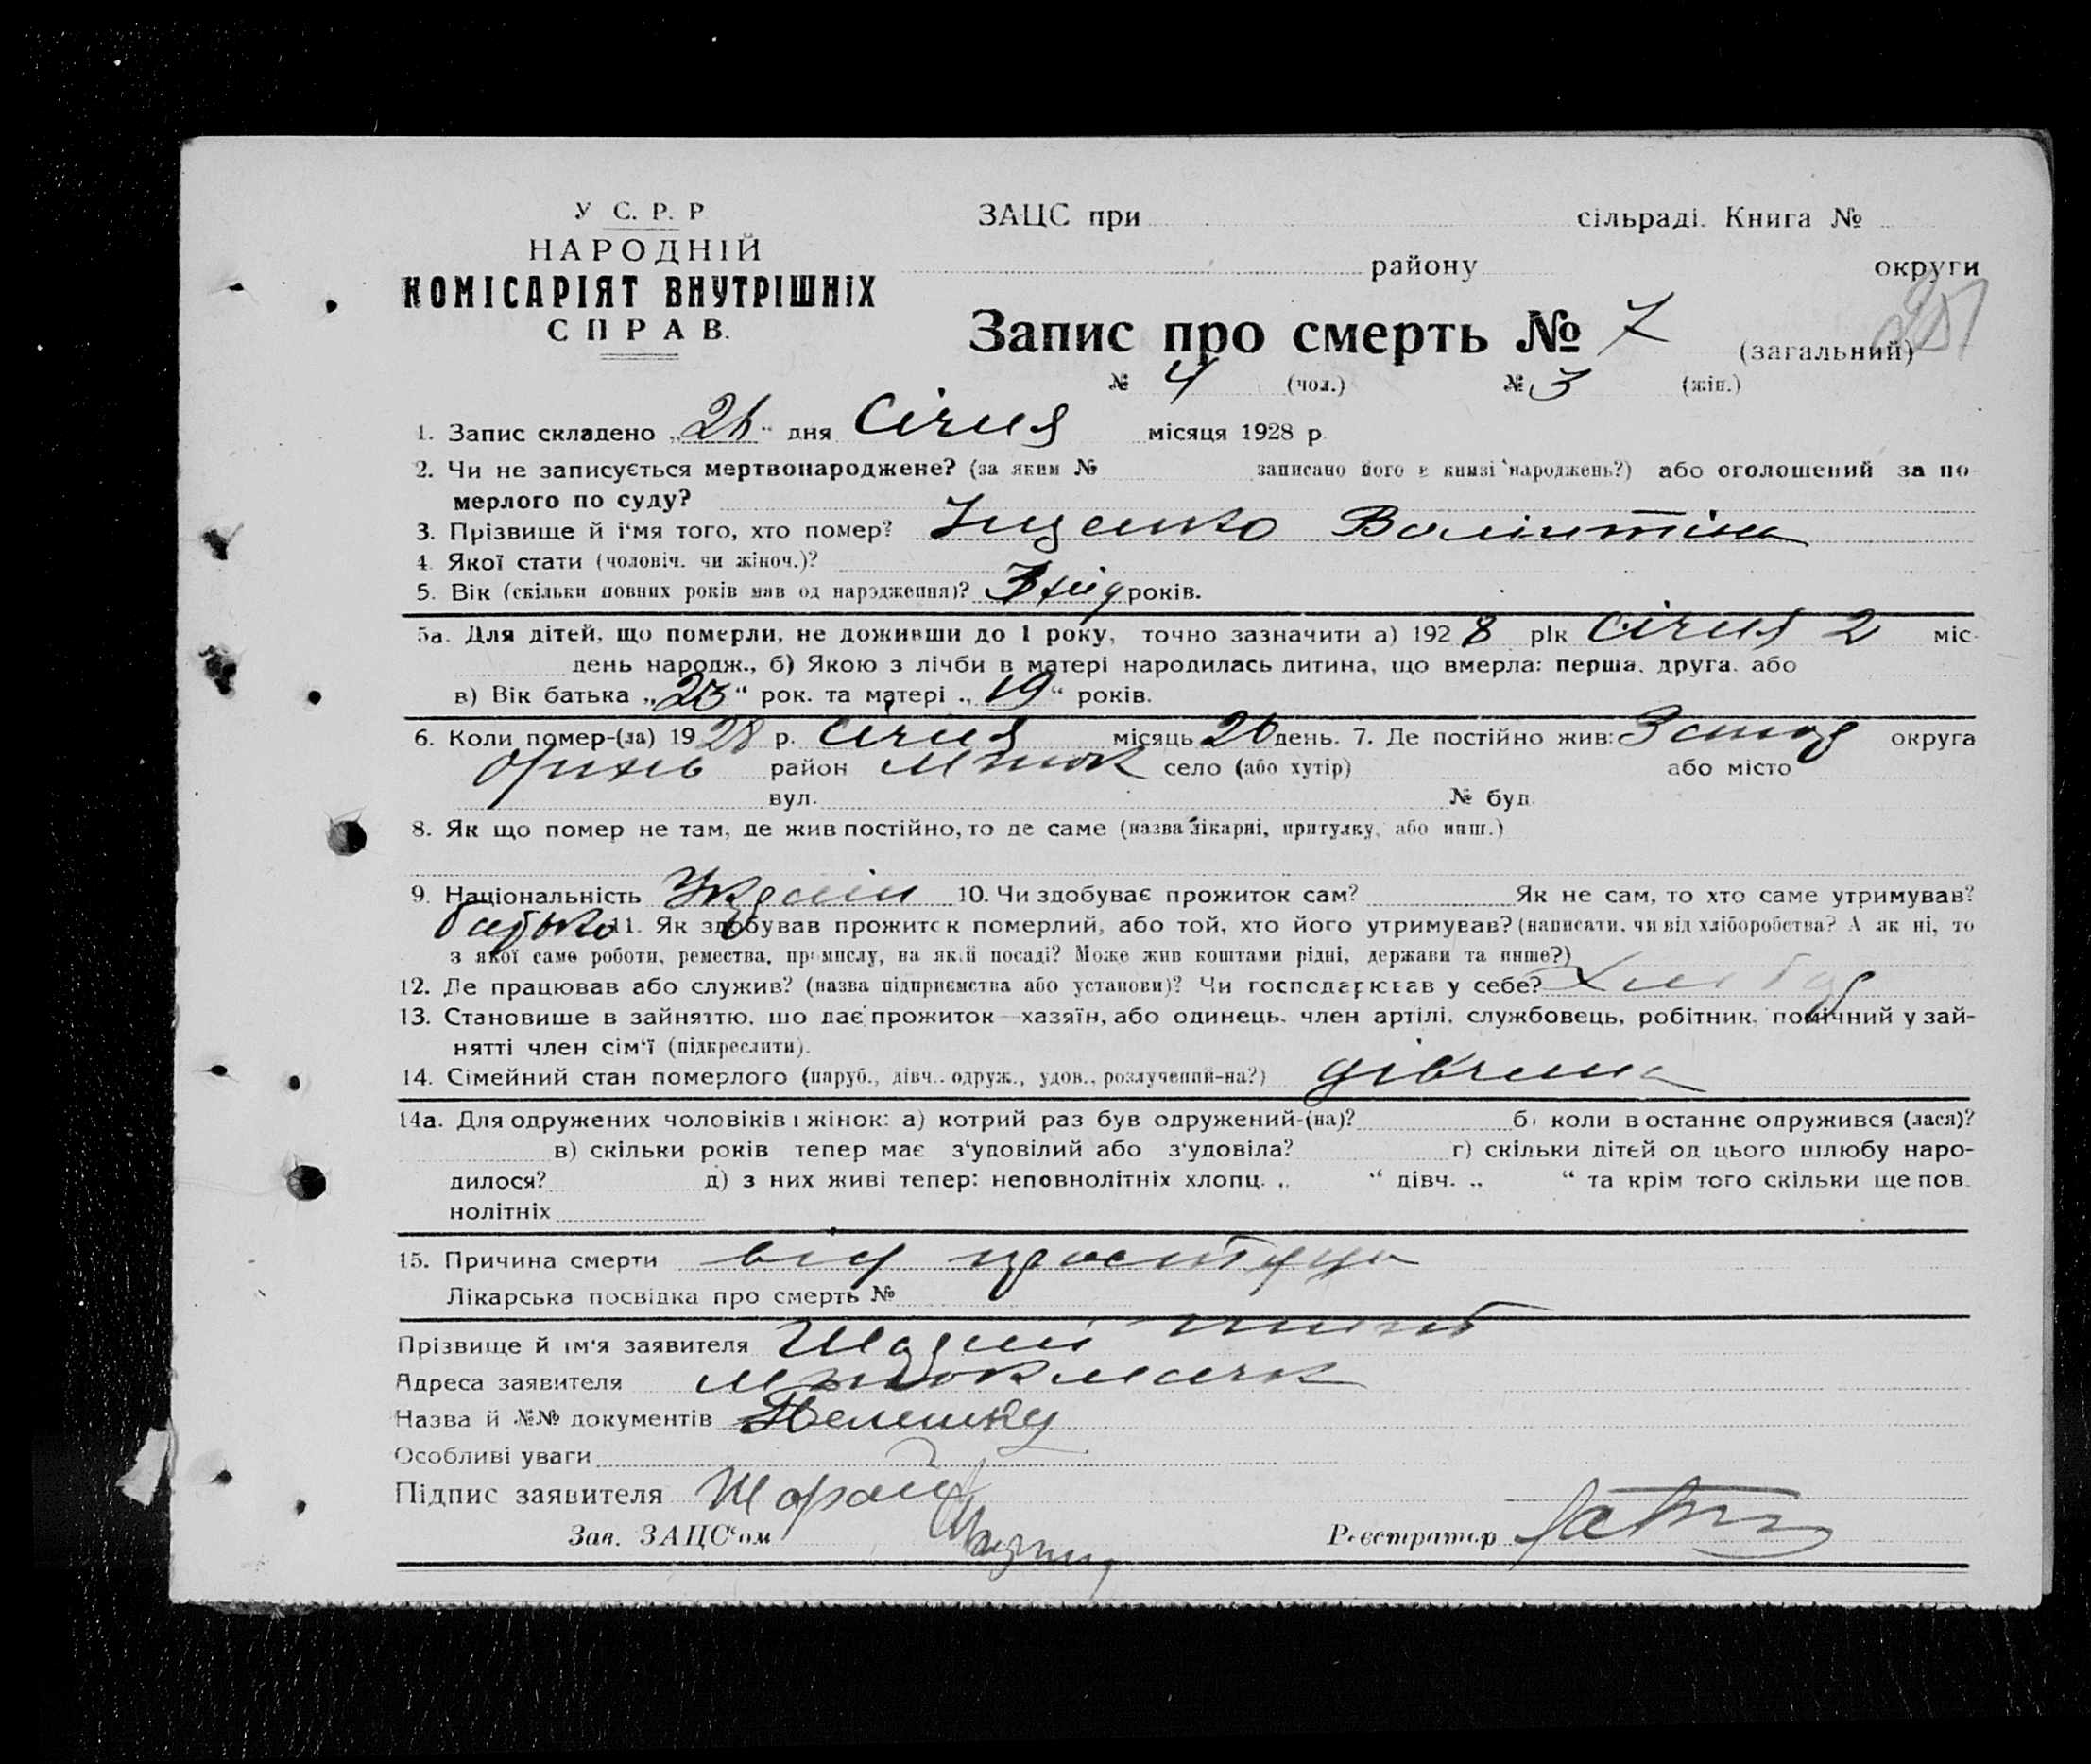 У С. Р. Р
НАРОДНІЙ
КОМІСАРІЯТ ВНУТРІШНІХ
СПРАВ.
ЗАЦС при сільраді. Книга №
району округи
Запис про смерть № 7 (загальний)
№ 4 (чол.) № 3 (жін.)
1. Запис складено „26“ дня Січня місяця 1928 р.
2. Чи не записується мертвонароджене? (за яким № записано його в книзі народжень?) або оголошений за по-
мерлого по суду?
3. Прізвище й і‘мя того, хто помер? Іщенко Валінтіна
4. Якої стати (чоловіч. чи жіноч.)?
5. Вік (скільки повних років мав од народження)? років.
5а. Для дітей, що померли, не доживши до 1 року, точно зазначити а) 1928 рік Січня 2 міс-
день народж., б) Якою з лічби в матері народилась дитина, що вмерла: перша, друга, або
в) Вік батька „23“ рок. та матері „19“ років.
6. Коли помер-(ла) 1928 р. Січня місяць 26 день. 7. Де постійно жив: округа
район село (або хутір) або місто
вул. № буд.
8. Як що помер не там, де жив постійно, то де саме (назва лікарні, притулку, або инш.)
9. Національність 10. Чи здобуває прожиток сам? Як не сам, то хто саме утримував?
батько 11. Як здобував прожиток померлий, або той, хто його утримував? (написати, чи від хліборобства? А як ні, то
з якої саме роботи, ремества, промислу, на якій посаді? Може жив коштами рідні, держави та инше?)
12. Де працював або служив? (назва підприємства або установи)? Чи господарював у себе?
13. Становище в зайняттю, що дає прожиток—хазяїн, або одинець, член артілі, службовець, робітник, помічний у зай-
нятті член сім‘ї (підкреслити).
14. Сімейний стан померлого (паруб., дівч., одруж., удов., розлучений-на?) дівчина
14а. Для одружених чоловіків і жінок: а) котрий раз був одружений-(на)? б) коли в останнє одружився (лася)?
в) скільки років тепер має з‘удовілий або з‘удовіла? г) скільки дітей од цього шлюбу наро-
дилося? д) з них живі тепер: неповнолітніх хлопц. „ “ дівч. „ “ та крім того скільки ще пов-
нолітніх
15. Причина смерти від простуди
Лікарська посвідка про смерть №
Прізвище й ім‘я заявителя
Адреса заявителя
Назва й №№ документів
Особливі уваги
Підпис заявителя
Зав. ЗАЦС‘ом Реєстратор